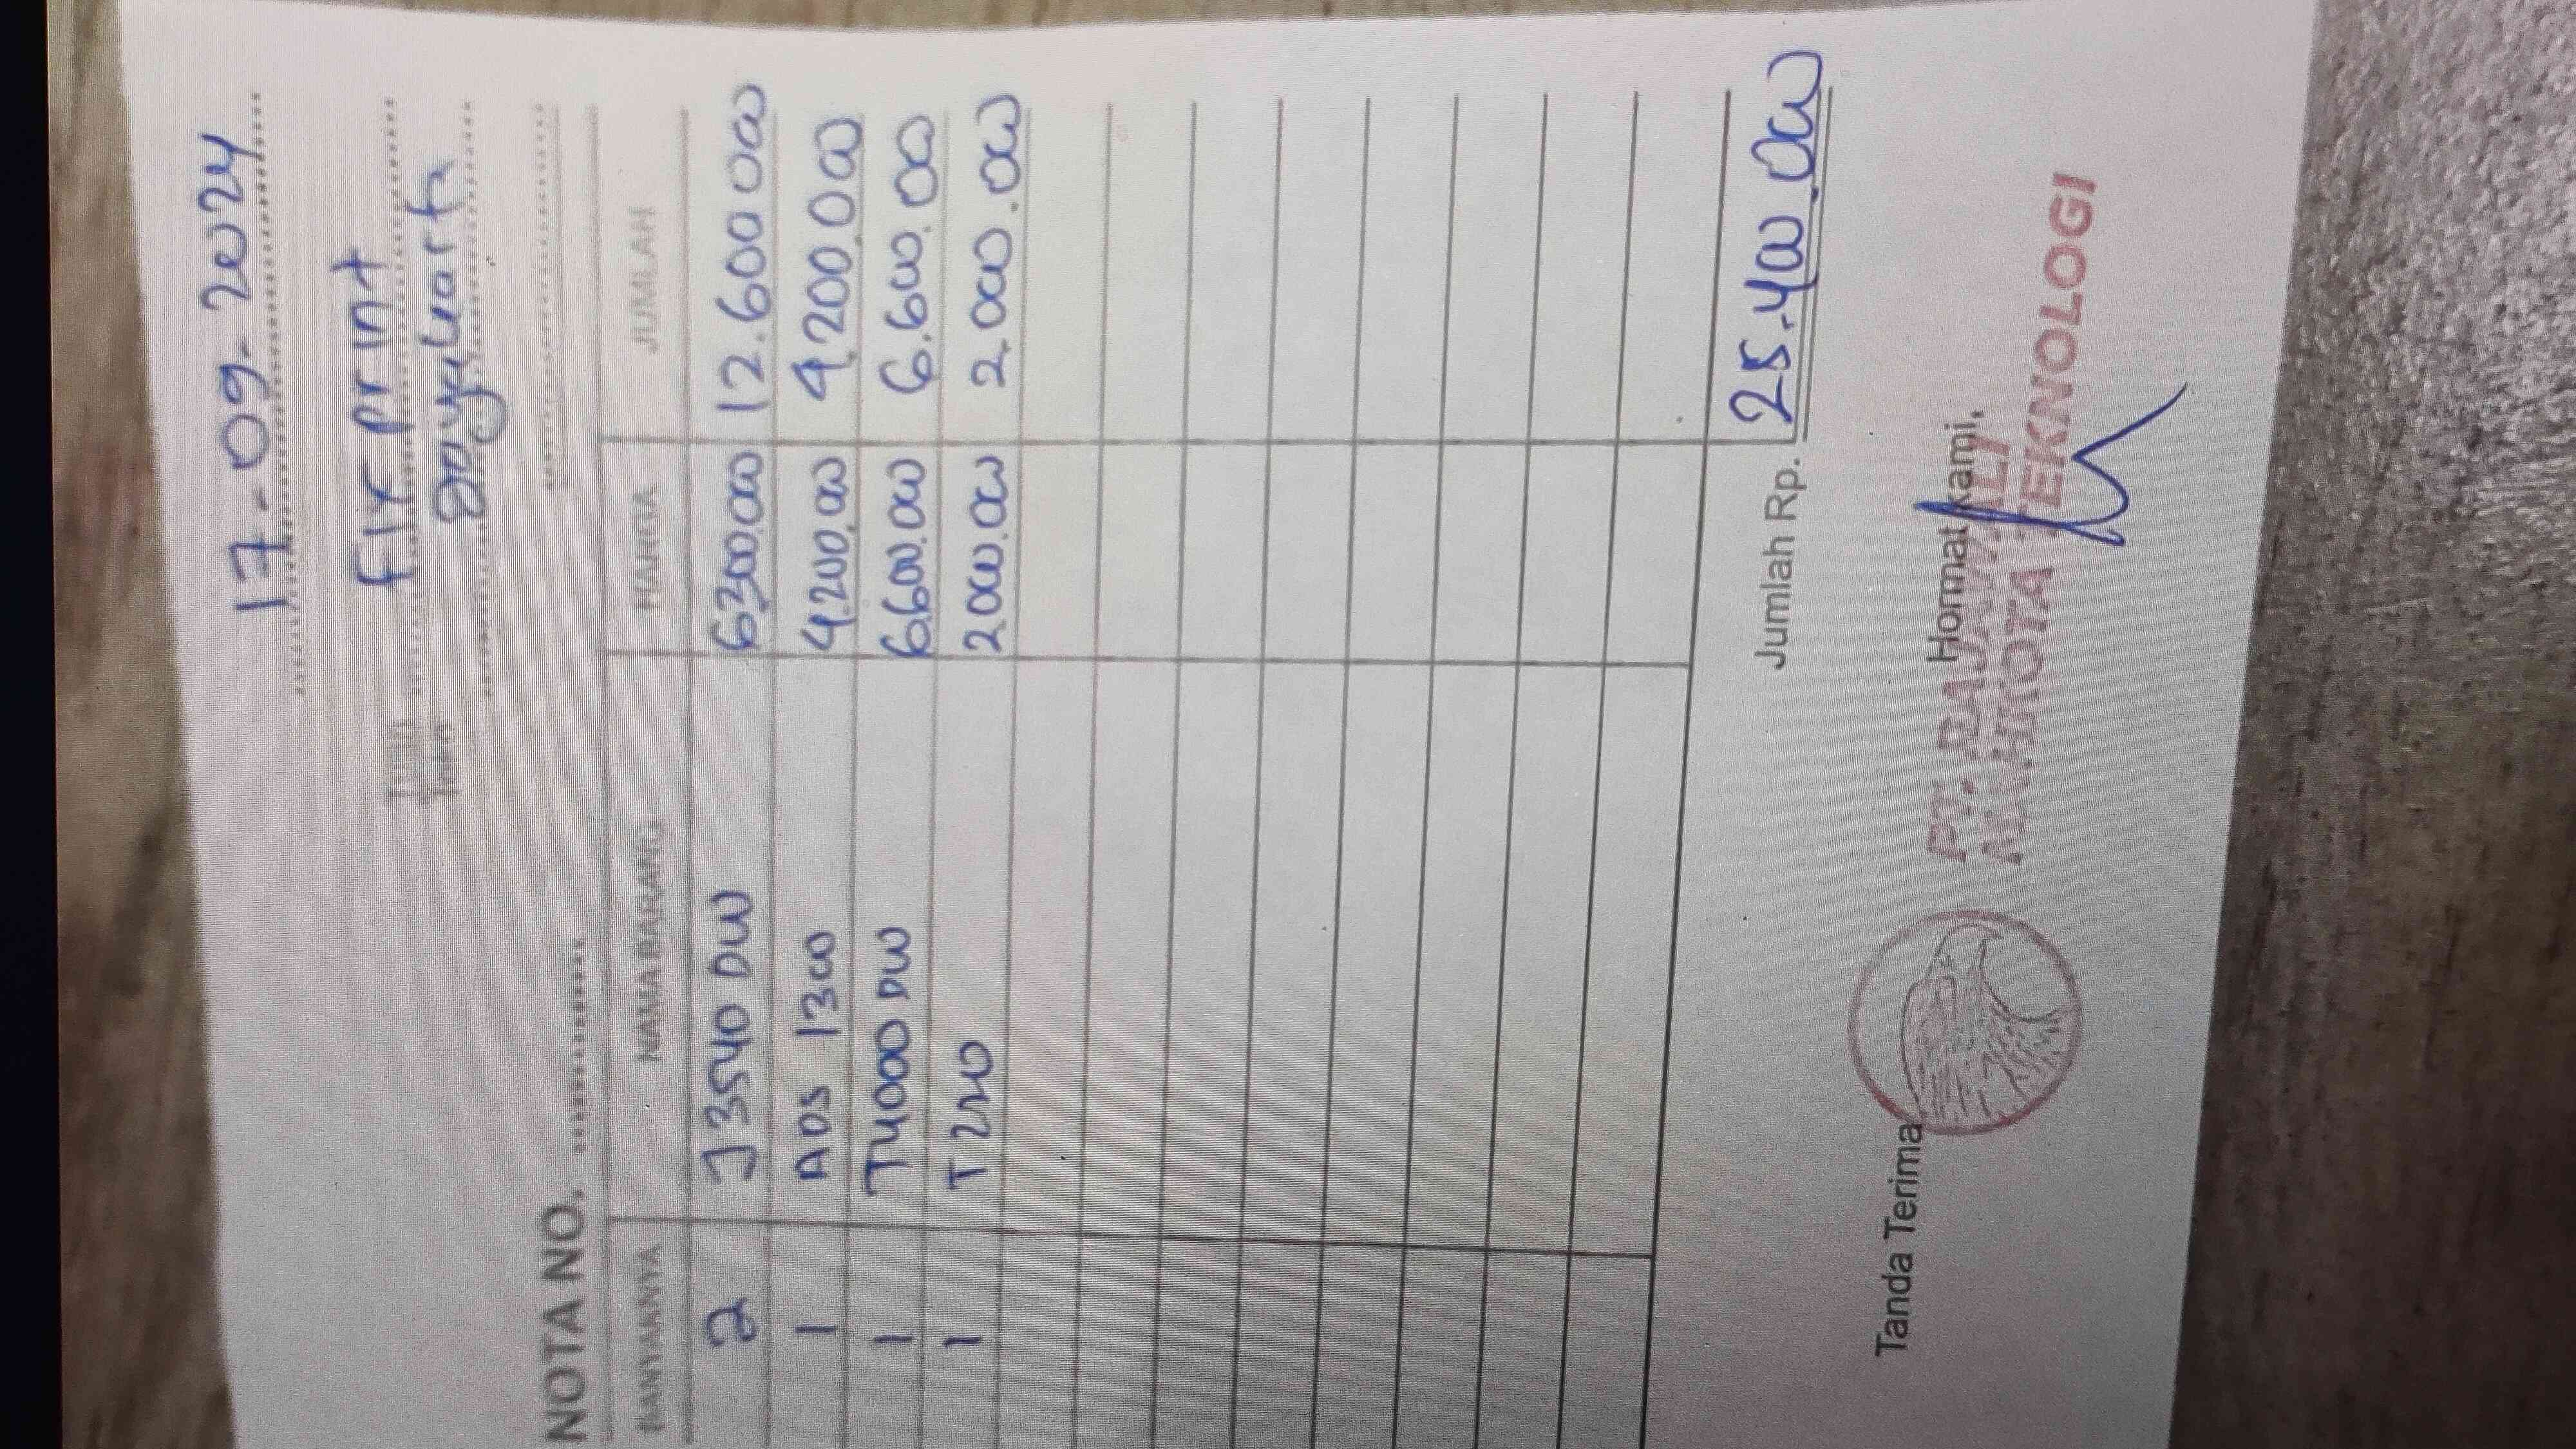 17-09-2024
Tuan Fix print
Toko
NOTA NO.
BANYAKNYA NAMA BARANG HARGA JUMLAH
2 J3540 DW 6300.000 12.600.000
1 ADS 1300 4.200.000 4.200.000
1 T4000 DW 6.600.000 6.600.00
1 T220 2.000.000 2.000.000
Jumlah Rp. 25.400.000
Tanda Terima Hormat kami,
PT. RAJAWALI
MAHKOTA TEKNOLOGI